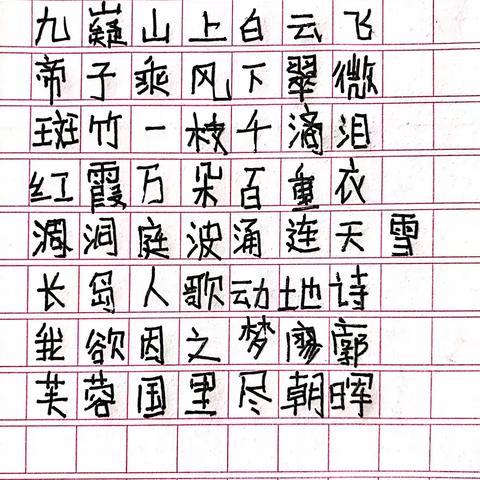 九嶷山上白云飞
帝子乘风下翠微
斑竹一枝千滴泪
红霞万朵百重衣
洞庭波涌连天雪
长岛人歌动地诗
我欲因之梦廖廓
芙蓉国里尽朝晖